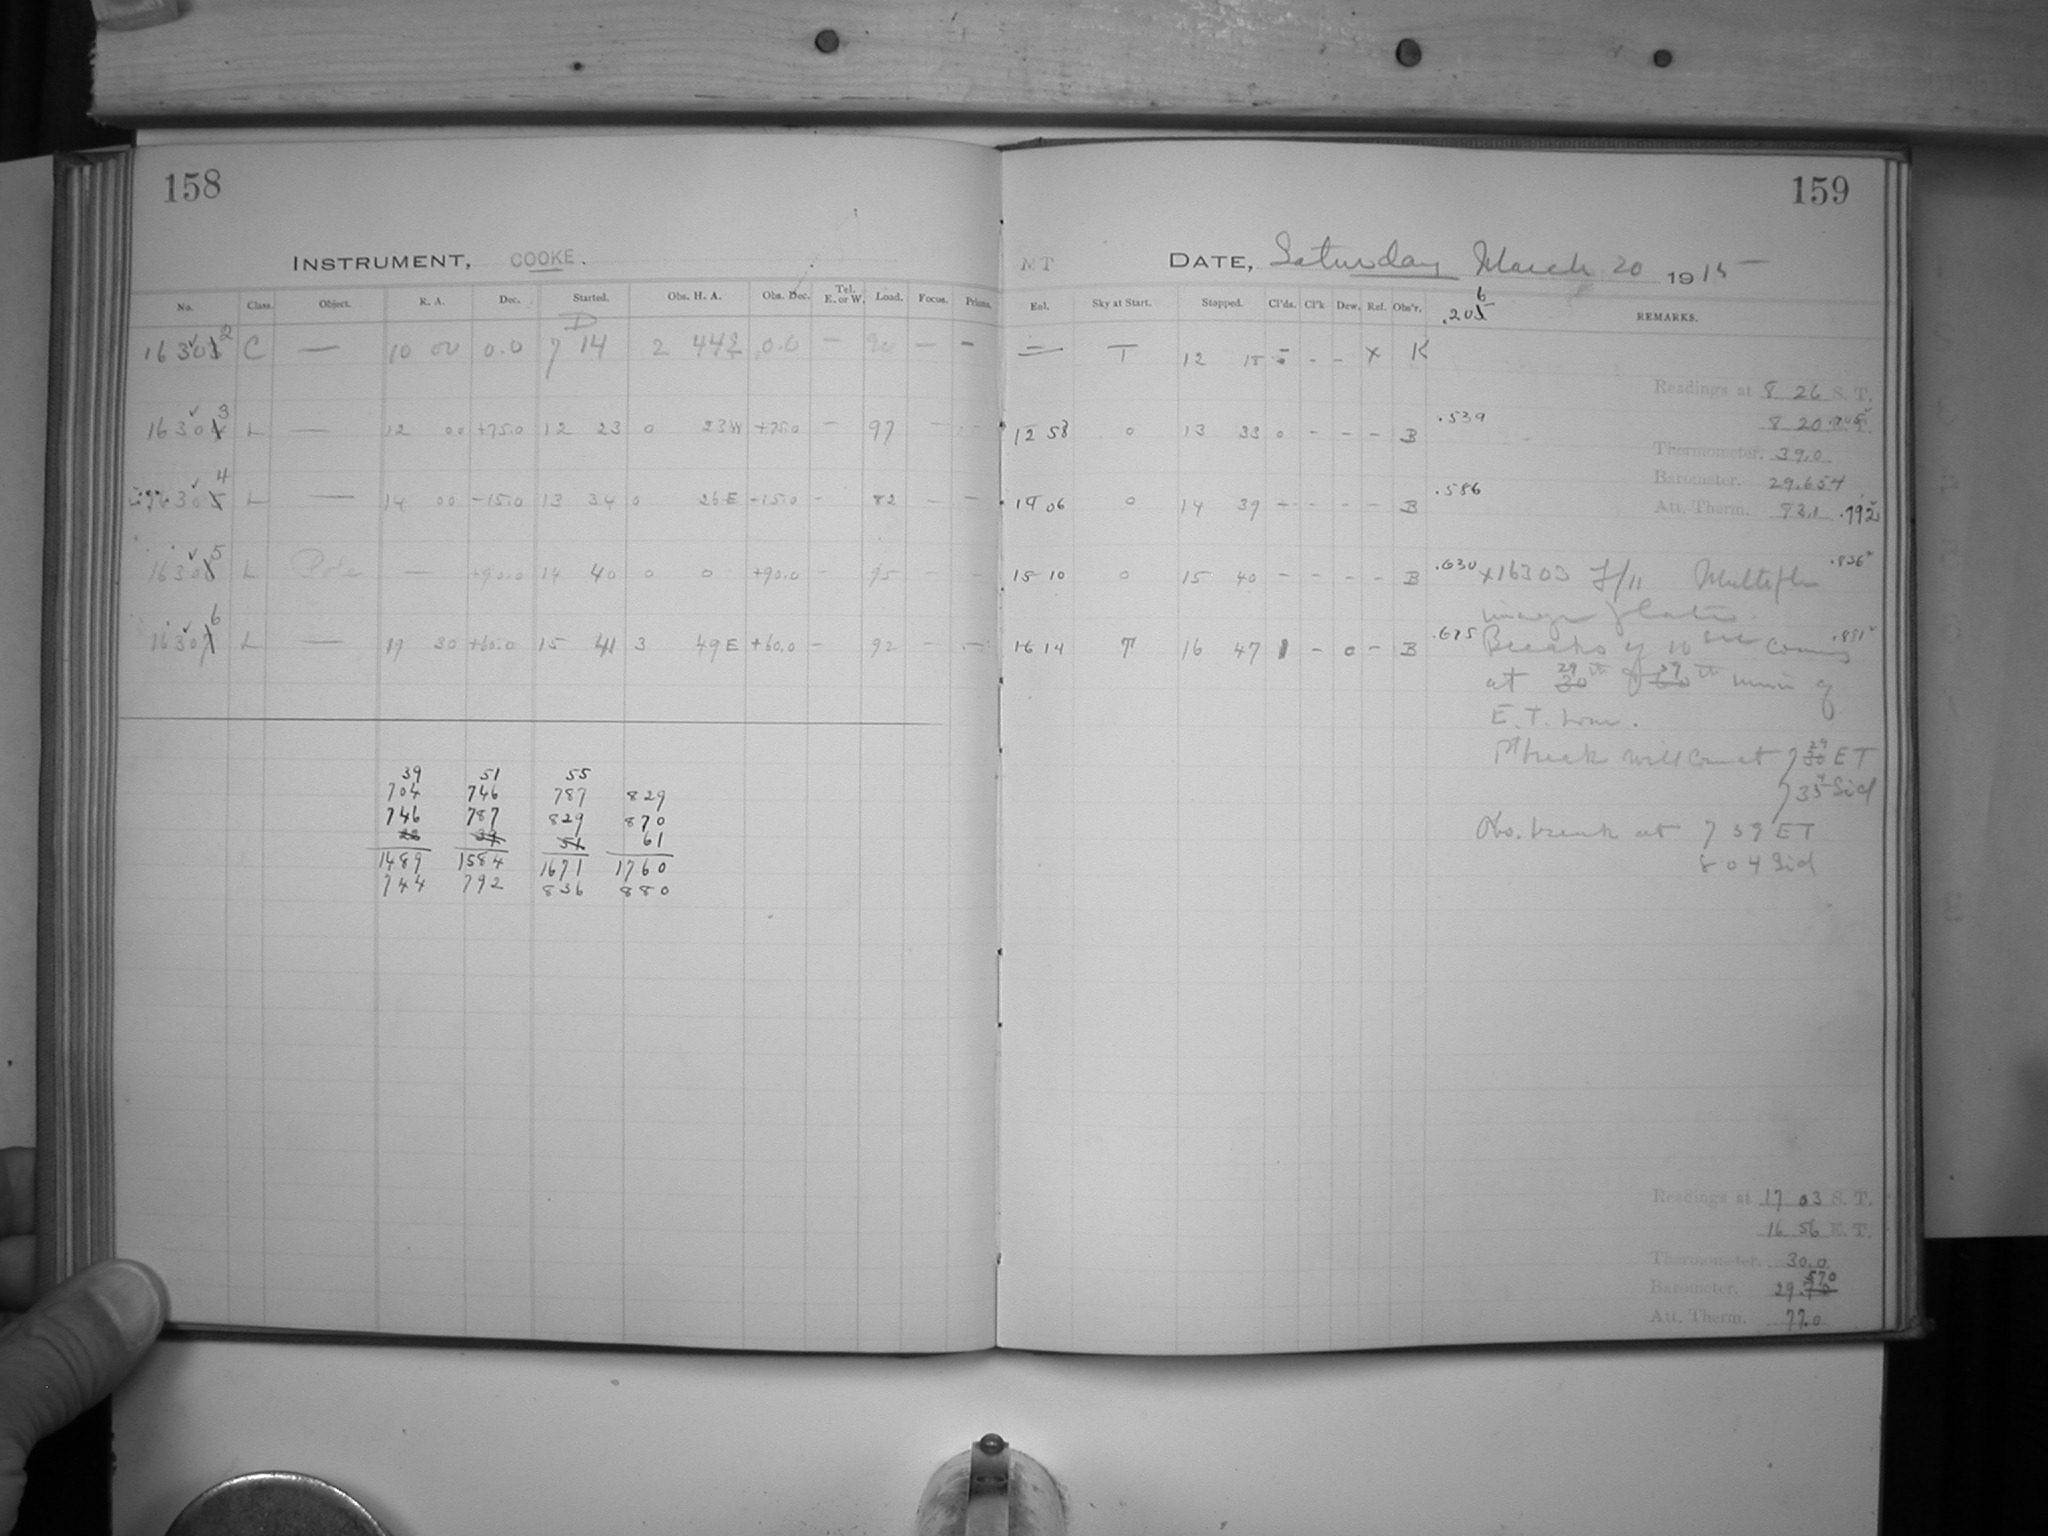 158
INSTRUMENT, COOKE.
No. Class. Object. R. A. Dec. Started. Obs. H. A. Obs. Dec. Tel. E. or W. Load. Focus. Prisms.
16302 C — 10 00 0.0 7 14 2 44 0.0 — 90 — —
16303 L — 12 00 +75.0 12 23 0 23W +75.0 — 97 —
16304 L — 14 00 -15.0 13 34 0 26E -15.0 - 82 — —
16305 L Pole — +90.0 14 40 0 0 +90.0 - 95 — —
16306 L — 19 30 +60.0 15 41 3 49E +60.0 — 92 — —
39 51 55
704 746 787 829
746 787 829 870
61
1489 1584 1671 1760
744 792 836 880
159
MT DATE, Saturday March 20 1915
Eol. Sky at Start. Stopped. Cl'ds. Cl'k Dew. Ref. Obs'r. .206 REMARKS.
— T 12 18 - - - x K
Readings at 8 26 S. T.
12 58 0 13 33 0 - - - B .539
8 20 E. T.
Thermometer. 39.0
Barometer. 29.654
14 06 0 14 39 - - - - B .586
Att. Therm. 83.1 .792
15 10 0 15 40 - - - - B .630 x16303 f/11 Multiple .836
image plate.
16 14 T 16 47 1 - 0 - B .675 Breaks of 10 sec coming .881
at 29 30 th & 59 60 th min of
E. T. hour.
1st break will come at 7 29 30 ET
7 35 Sid
Obs. break at 7 39 ET
8 04 Sid
Readings at 17 03 S. T.
16 56 E. T.
Thermometer. 30.0
Barometer. 29.570
Att. Therm. 77.0